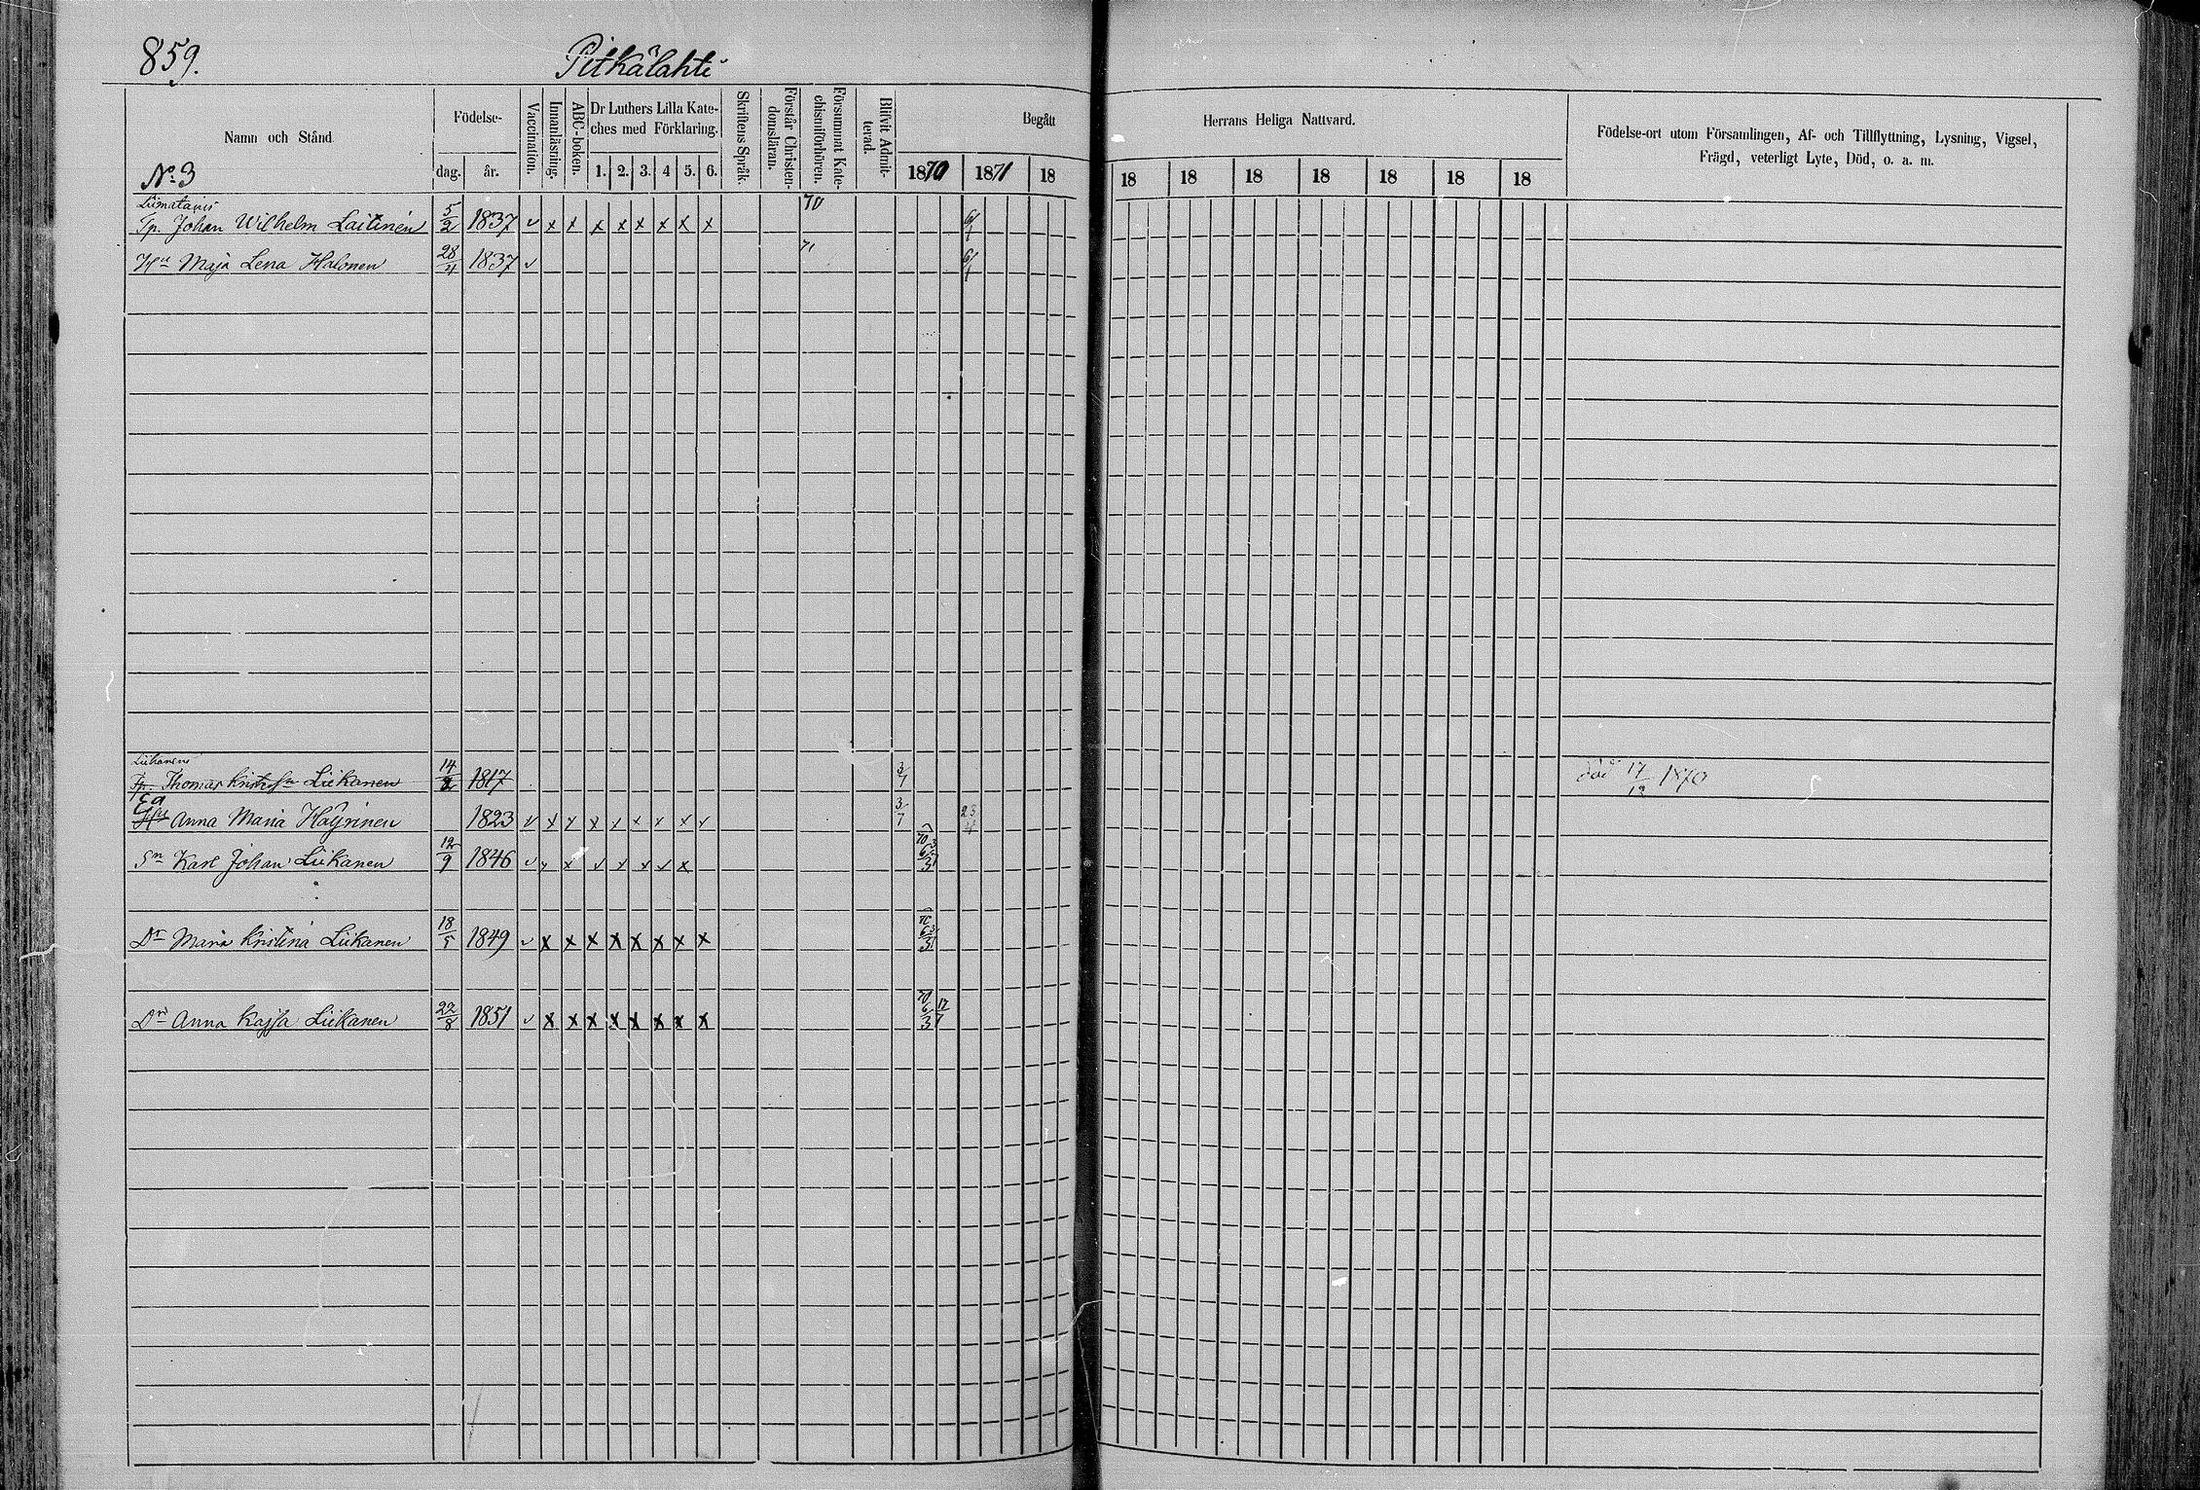 859. Pitkälahti
Namn och Stånd.
Födelse-
dag. år.
Vaccination.
Innanläsning.
ABC-boken.
Dr Luthers Lilla Kate-
ches med Förklaring.
1. 2. 3. 4 5. 6.
Skriftens Språk.
Förstår Christen-
domsläran.
Försummat Kate-
chismiförhören.
Blifvit Admit-
terad.
Begått Herrans Heliga Nattvard.
1870 1871 18 18 18 18 18 18 18 18
Födelse-ort utom Församlingen, Af- och Tillflyttning, Lysning, Vigsel,
Frägd, veterligt Lyte, Död, o. a. m.
No 3
Liimatains 70
Tp. Johan Wilhelm Laitinen 5/2 1837 v x x x x x x x x 6/1
Hu Maja Lena Halonen 28/4 1837 v 71 6/1
Liikanens
Tp. Thomas Kristersn Liikanen 14/2 1817 3/7 död 17/12 1870
Ea
Hu Anna Maria Häyrinen 1823 v x x x x x x x v 3/7 23/4
Sn Karl Johan Liikanen 12/9 1846 v x x v x x v x 70 6/3
Dr Maria Kristina Liikanen 18/5 1849 v x x x x x x x x 70 6/3
Dr Anna Kajsa Liikanen 22/8 1851 v x x x x x x x x 70 6/3 17/7